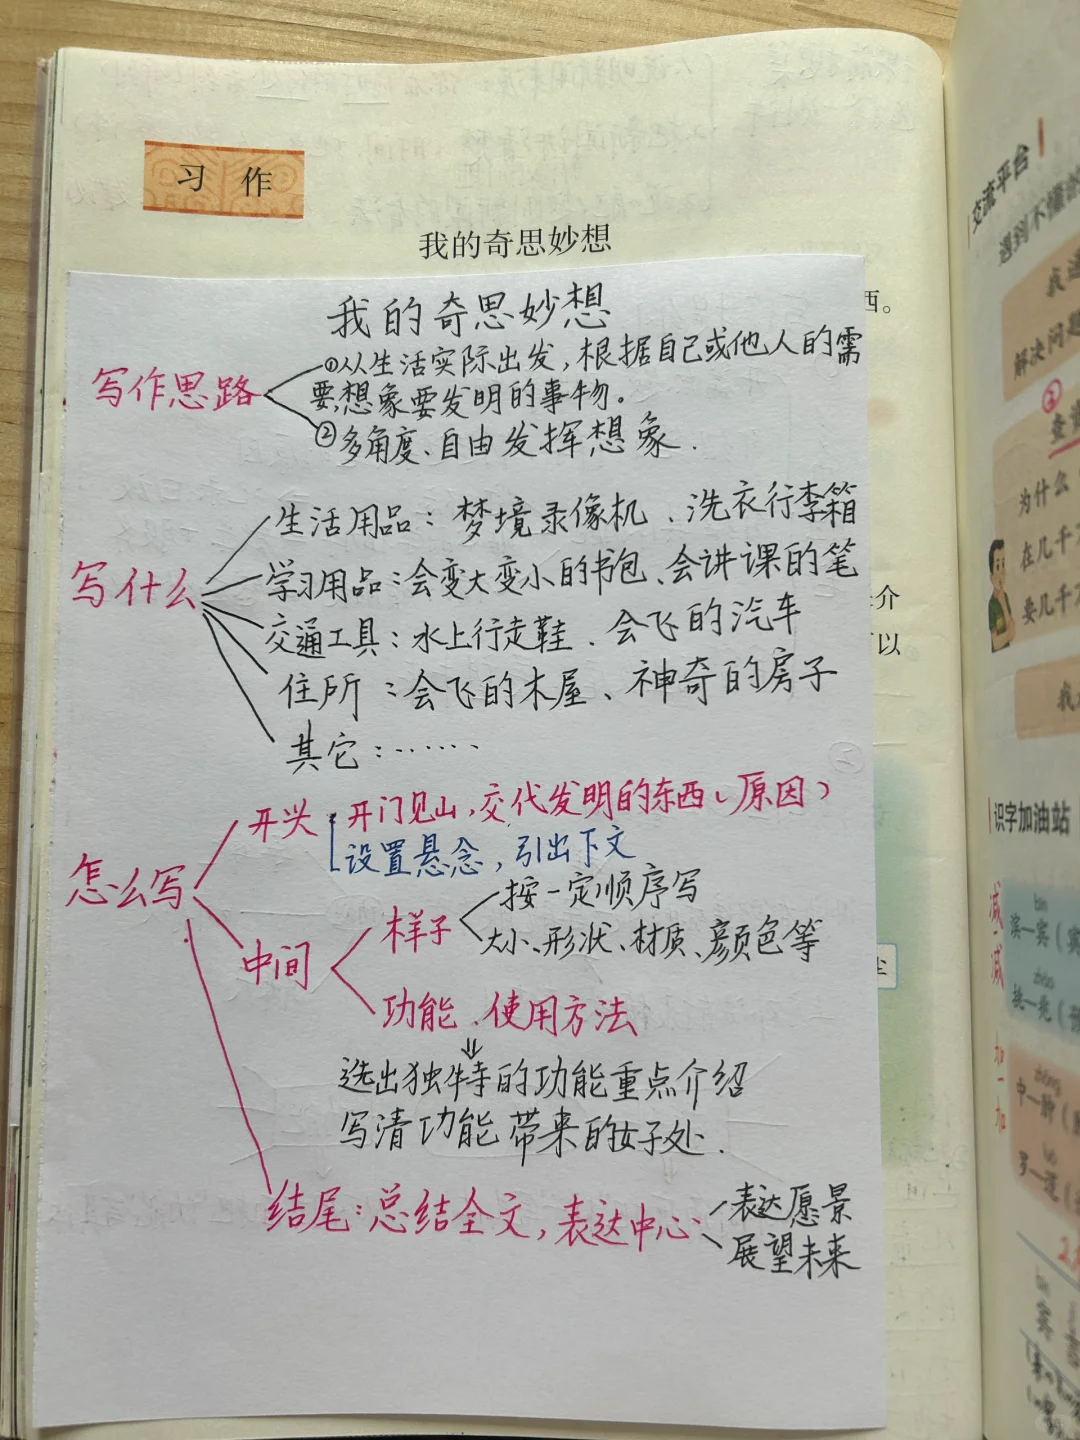 习 作
我的奇思妙想
西。
我的奇思妙想
写作思路
①从生活实际出发,根据自己或他人的需
要,想象要发明的事物。
②多角度、自由发挥想象.
写什么
生活用品:梦境录像机、洗衣行李箱
学习用品:会变大变小的书包、会讲课的笔
交通工具:水上行走鞋、会飞的汽车
住所:会飞的木屋、神奇的房子
其它:......
介
以
怎么写
开头
开门见山,交代发明的东西(原因)
设置悬念,引出下文
中间
样子
按一定顺序写
大小、形状、材质、颜色等
功能、使用方法
⇓
选出独特的功能重点介绍
写清功能带来的好处.
结尾:总结全文,表达中心
表达愿景
展望未来
交流平台
遇到不懂的
解决问题
②
为什么
在几千
要几千
识字加油站
减
减
bīn
滨—宾(
加一加